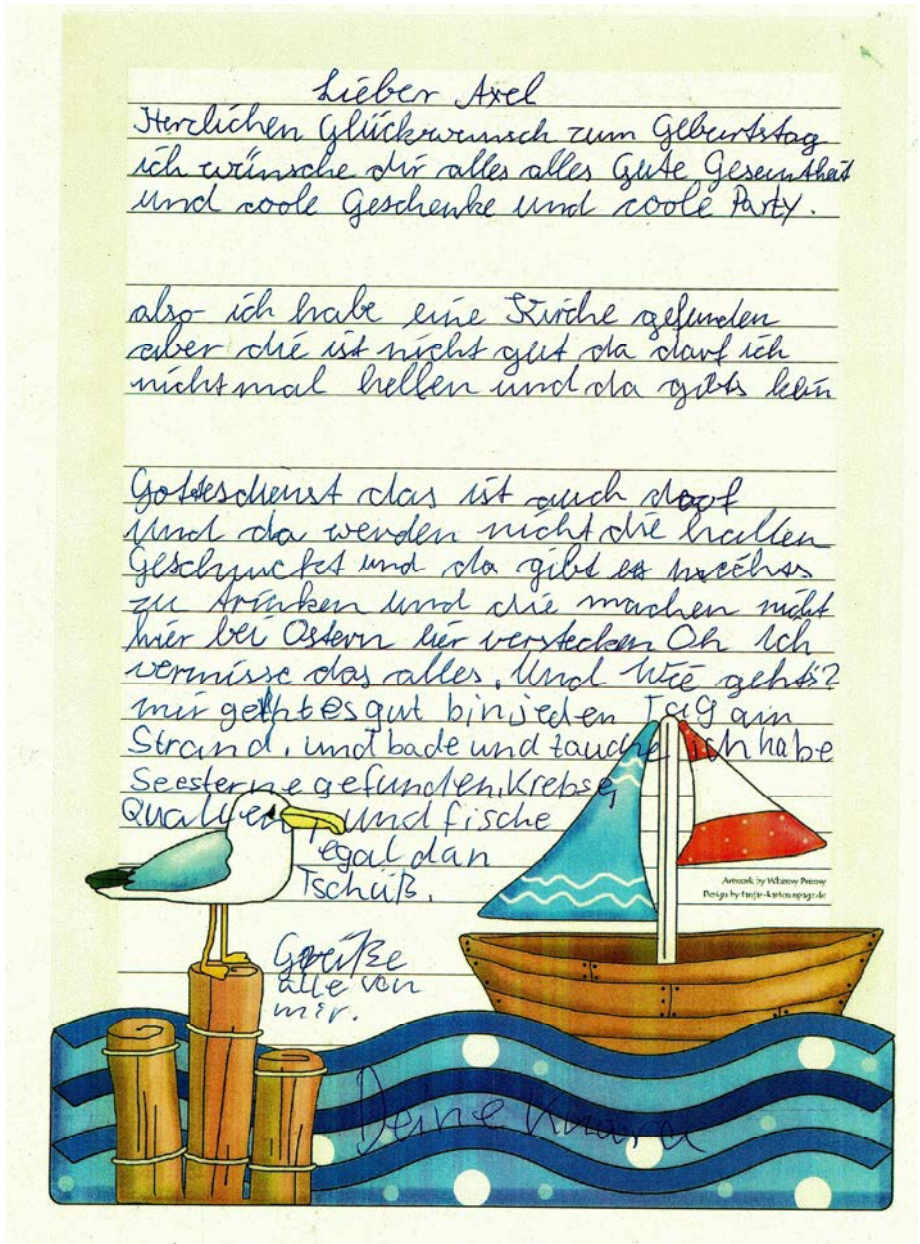 Lieber Axel
Herzlichen Glückwunsch zum Geburtstag
ich wünsche dir alles alles Gute Gesuntheit
und coole Geschenke und coole Party.
also ich habe eine Kirche gefunden
aber die ist nicht gut da darf ich
nicht mal helfen und da gibts kein
Gottesdienst das ist auch doof
und da werden nicht die hallen
Geschmucket und da gibt es nichts
zu trinken und die machen nicht
hier bei Ostern eier verstecken Oh ich
vermisse das alles. Und Wie gehts?
mir geht es gut bin jeden Tag am
Strand. und bade und tauche ich habe
Seesterne gefunden, Krebse,
Quallen, und fische
egal dan
Tschüß.
Artwork by Whimsy Primsy
Grüße
alle von
mir.
Deine